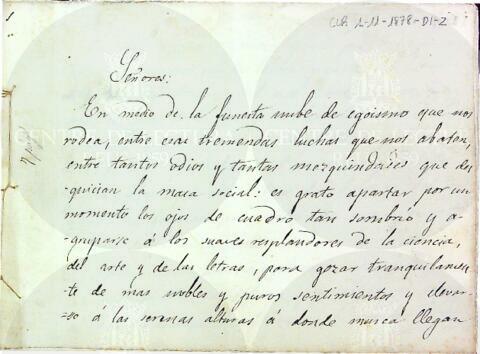 CLB 1-11-1878-D1-2
Señores:
En medio de la funesta nube de egoismo que nos
rodea, entre esas tremendas luchas que nos abaten,
entre tantos odios y tantas mezquindades que des
-quician la masa social: es grato apartar por un
momento los ojos de cuadro tan sombrio y a-
-gruparse á los suaves resplandores de la ciencia,
del arte y de las letras, para gozar tranquilamen-
-te de mas nobles y puros sentimientos y elevar-
-se á las serenas alturas á donde nunca llegan